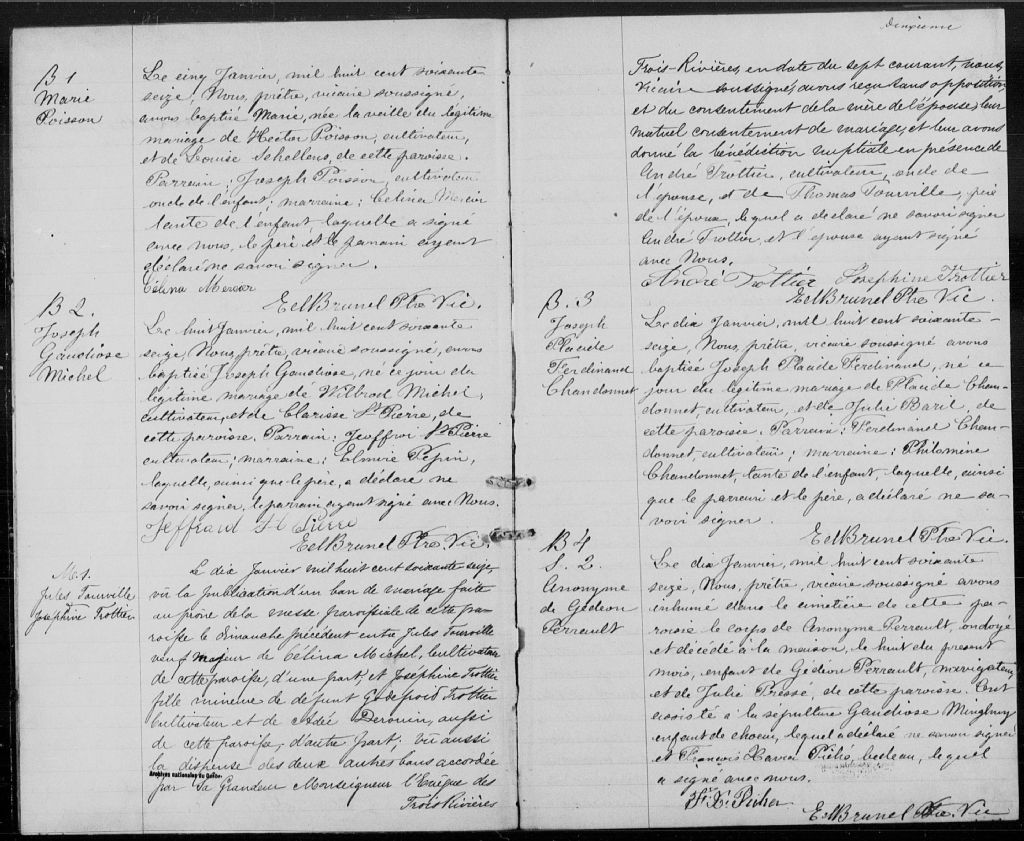 B 1
Marie
Poisson
Le cinq Janvier, mil huit cent soixante
seize, Nous, prêtre, vicaire soussigné,
avons baptisé Marie, née la veille du légitime
mariage de Hector Poisson, cultivateur,
et de Louise Schellens, de cette paroisse.
Parrain: Joseph Poisson, cultivateur
oncle de l'enfant; marraine: Célina Mercier
tante de l'enfant laquelle a signé
avec nous, le père et le parrain ayant
déclaré ne savoir signer.
Célina Mercier
Ed Brunel Ptre Vic.
B 2.
Joseph
Gaudiose
Michel
Le huit Janvier, mil huit cent soixante
seize, Nous, prêtre, vicaire soussigné, avons
baptisé Joseph Gaudiose, né ce jour du
légitime mariage de Wilbrod Michel,
cultivateur, et de Clarisse St Pierre, de
cette paroisse. Parrain: Jeoffroi St Pierre
cultivateur; marraine: Elmire Pepin,
laquelle, ainsi que le père, a déclaré ne
savoir signer, le parrain ayant signé avec Nous.
St Pierre
Ed Brunel Ptre Vic.
M. 1.
Jules Tourville
Josephine Trottier
Le dix Janvier mil huit cent soixante seize,
vu la publication d'un ban de mariage faite
au prône de la messe paroissiale de cette pa-
roisse le dimanche précédent entre Jules Tourville
veuf majeur de Célina Michel, cultivateur
de cette paroisse, d'une part, et Joséphine Trottier
fille mineure de défunt Godefroid Trottier
cultivateur et de Derouin, aussi
de cette paroisse, d'autre part; vu aussi
la dispense des deux autres bans accordée
Archives nationales du Québec
par Sa Grandeur Monseigneur l'Evêque des
Trois Rivières
deuxième
Trois-Rivières, en date du sept courant, nous,
Vicaire soussigné, avons reçu sans opposition,
et du consentement de la mère de l'épouse, leur
mutuel consentement de mariage, et leur avons
donné la bénédiction nuptiale en présence de
André Trottier, cultivateur, oncle de
l'épouse, et de Thomas Tourville, père
de l'époux, lequel a déclaré ne savoir signer
André Trottier, et l'épouse ayant signé
avec Nous.
André Trottier Josephine Trottier
Ed Brunel Ptre Vic.
B. 3
Joseph
Placide
Ferdinand
Chandonnet
Le dix Janvier, mil huit cent soixante-
seize, Nous, prêtre, vicaire soussigné avons
baptisé Joseph Placide Ferdinand, né ce
jour du légitime mariage de Placide Chan-
donnet, cultivateur, et de Julie Baril, de
cette paroisse. Parrain: Ferdinand Chan-
donnet, cultivateur; marraine: Philomène
Chandonnet, tante de l'enfant, laquelle, ainsi
que le parrain et le père, a déclaré ne sa-
voir signer.
Ed Brunel Ptre Vic.
B 4
S. 2.
Anonyme
de Gédeon
Perrault
Le dix Janvier, mil huit cent soixante
seize, Nous, prêtre, vicaire soussigné avons
inhumé dans le cimetière de cette pa-
roisse le corps de Anonyme Perrault, ondoyé
et décédé à la maison, le huit du présent
mois, enfant de Gédéon Perrault, navigateur,
et de Julie Presse, de cette paroisse. Ont
assisté à la sépulture Gaudiose
enfant de choeur, lequel a déclaré ne savoir signer
et François Xavier Piché, bedeau, lequel
a signé avec nous.
F. X. Picher
Ed Brunel Ptre. Vic